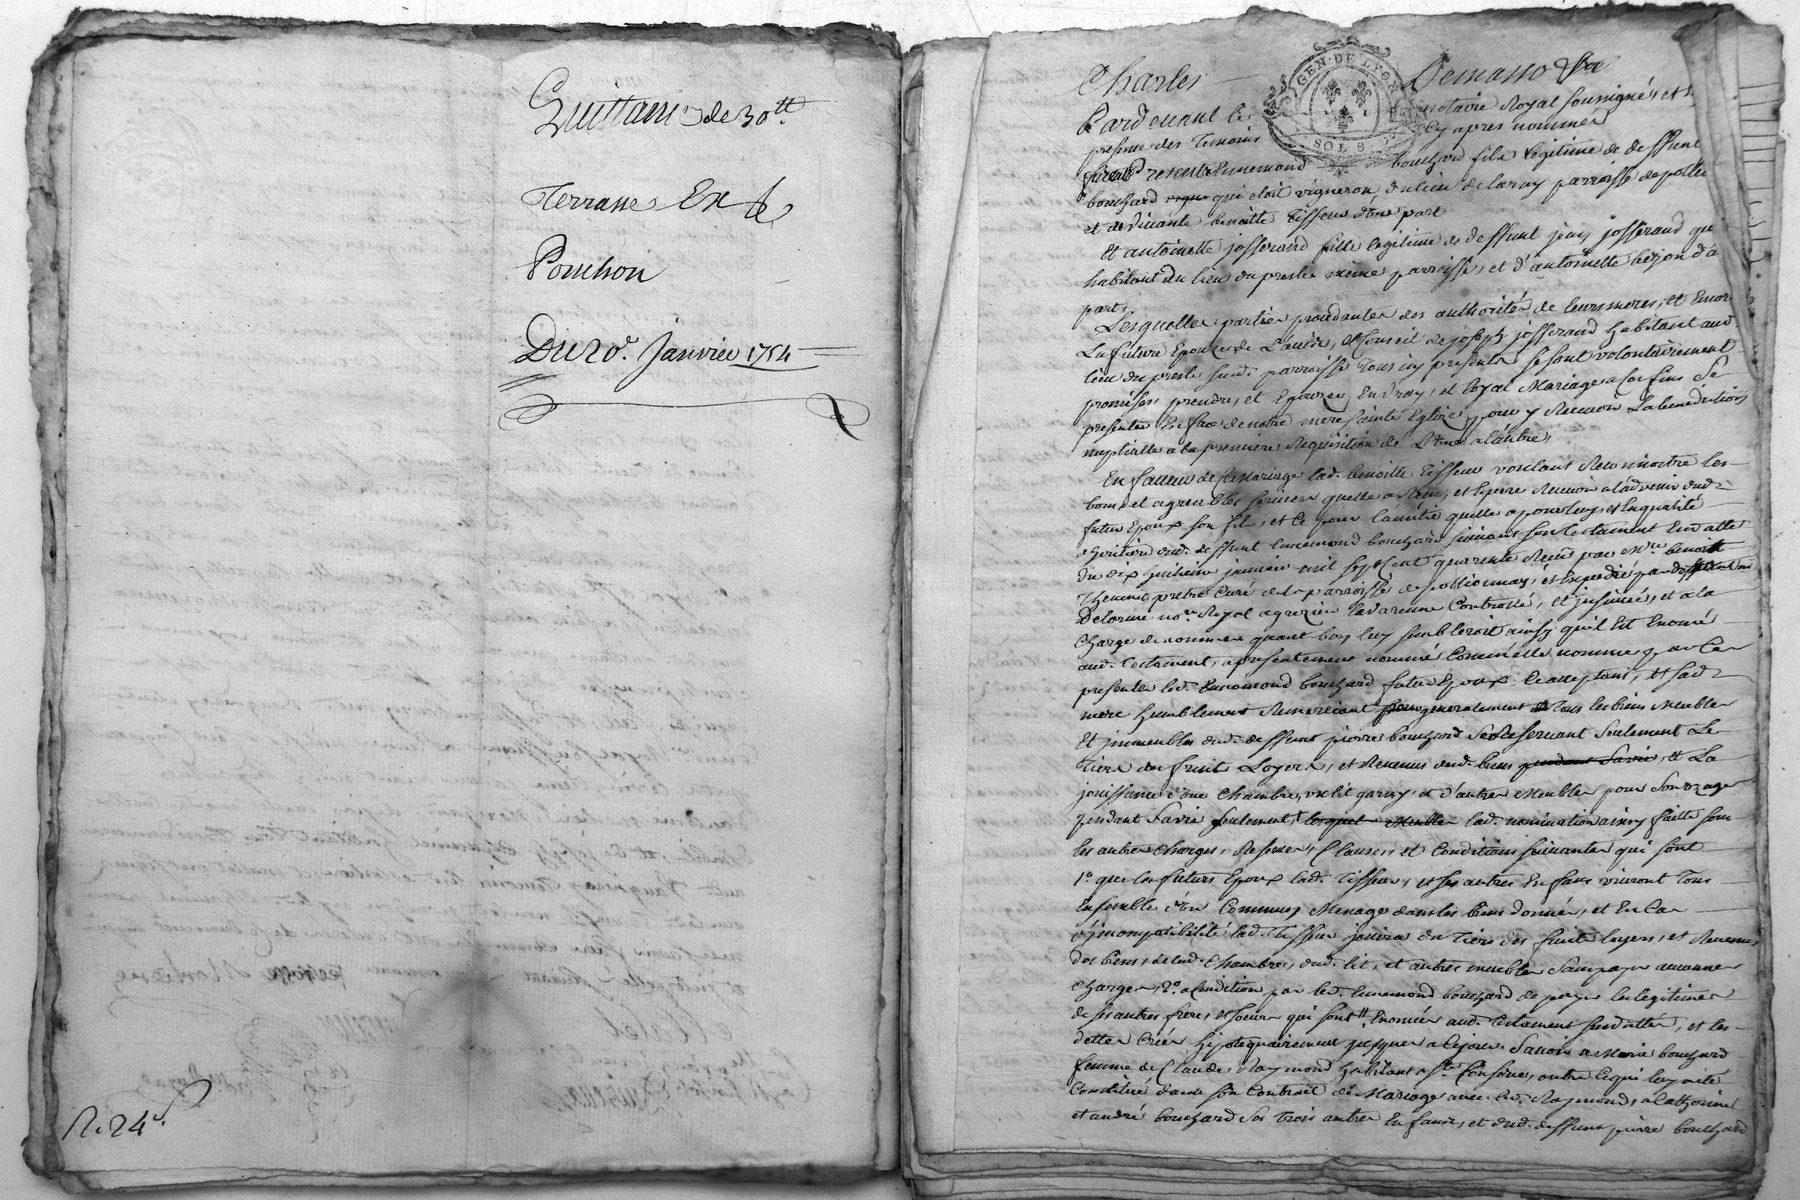 Quittance de 30tt
Terrasse Et
Ponchon
Du 20e. Janvier 1754
R. 24s
GEN. DE LYON
SOLS
Charles Demasso
Pardevant le notaire Royal soussigné, et
presence des Temoins cy apres nommes
furent Presents Ennemond bouchard fils legitime de deffunt
bouchard qui etoit vigneron du lieu de laray parroisse de polle
et de vivante benoitte tisseur d'une part
Et antoinette josserand fille legitime de deffunt jean josserand qui
habitant du lieu du presle même parroisse, et d'antoinette d'a
part,
Lesquelles parties procedantes des authorités de leurs meres, et encor
La future Epouze de L'avis, et Conseil de joseph josserand habitant aud.
lieu du presle susd. parroisse Tous icy presents se sont volontairement
promises prendre, et Epouzer En vray, et loyal Mariage a ses fins se
presenter En face de notre mere sainte Eglize, pour y Recevoir La benediction
nuptialle a la premiere Requisition de L'une a l'autre,
En faveur de ce Mariage lad. benoitte Tisseur voulant Reconnoitre les
bons et agreables services quelle a Reçu, et Espere Recevoir a l'advenir dud.
futur Epoux son fils, et ce pour l'amitié quelle a pour luy, et En qualité
d'heritiere dud. deffunt bouchard suivant son Testament En datte
du dix huitieme janvier mil sept cent quarante Reçu par Mre. benoitt
Thevenet pretre Curé de la parroisse de pollionnay, et Expedié par
Delorme nore. Royal a grezieu Lavarenne Controllé, et jnsinué, et a la
Charge de nommer quant bon luy sembleroit ainsy quil Est Enoncé
aud. Testament, a presentement nommé Comme elle nomme par Ces
presentes led. Ennemond bouchard futur Epoux Ce acceptant, et sad.
mere humblement Remerciant generalement Tous les biens Meubles
Et jmmeubles dud. deffunt pierre bouchard se Reservant seulement Le
tiers des fruits Loyers, et Revenus desd. biens pendant sa vie, et La
jouissance d'une Chambre, un lit garny, et d'autres Meubles pour son uzage
pendant sa vie seulement, lad. nomination ainsy faitte sous
les autres charges, Reserves, Clauses, et Conditions suivantes qui sont
1o. que les futurs Epoux lad. Tisseur, et ses autres Enfans vivront Tous
Ensemble d'un Commun Menage dans les biens donnés, et En Cas
d'jncompatibilité lad. Tisseur jouira du Tiers des fruits loyers, et Revenus
des biens, de lad. Chambre, dud. lit, et autres meubles sans payer aucunes
charges, 2o. a Condition par led. Ennemond bouchard de payer les legitimes
de ses autres freres, et soeurs qui sont Enoncés aud. Testament susdatté, et les
dettes Créés hipotequairement jusques a Ce jour. Savoir a Marie bouchard
femme de Claude Raymond habitant a ste. Consorce, outre Ce qui luy a été
Constitué dans son Contrait de Mariage avec led. Raymond, a Catherine
et andré bouchard ses Trois autres Enfans, et dud. deffunt pierre bouchard